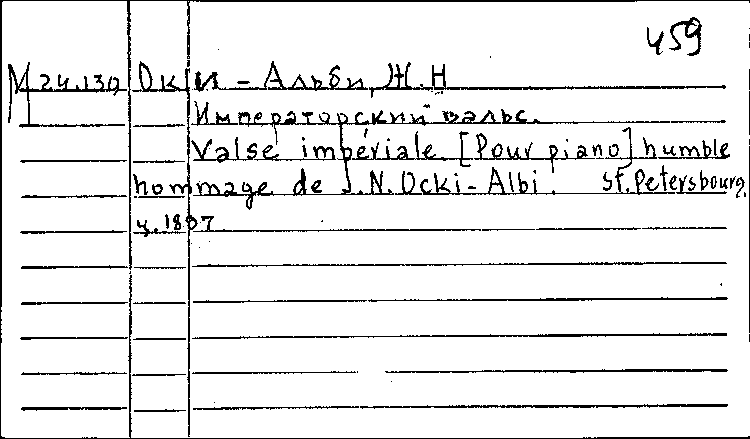 459
М 24.130 Окки-Альби, Ж. Н
Императорский вальс.
Valse impériale. [Pour piano] humble
hommage de J. N. Ocki-Albi. St. Petersbourg,
ц. 1897